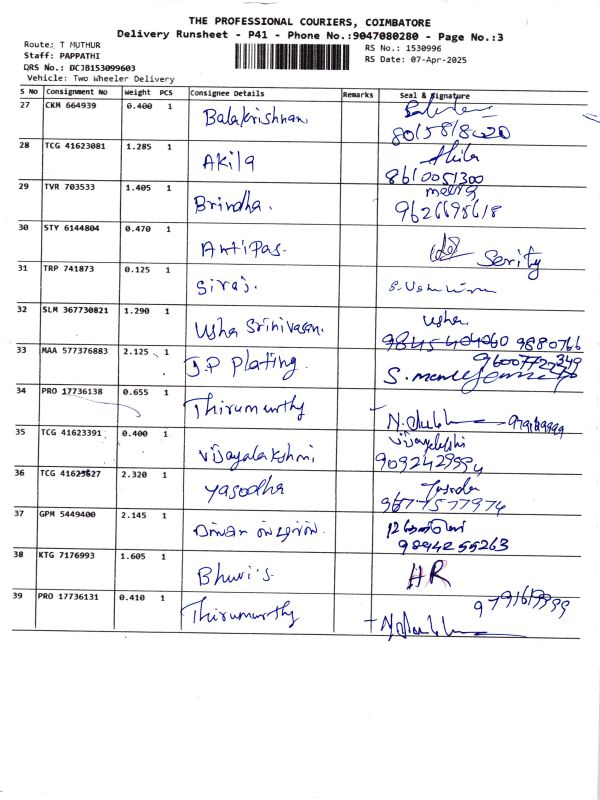 THE PROFESSIONAL COURIERS, COIMBATORE
Delivery Runsheet - P41 - Phone No.:9047080280 - Page No.:3
Route: T MUTHUR
RS No.: 1530996
Staff: PAPPATHI
RS Date: 07-Apr-2025
DRS No.: DCJB153099603
Vehicle: Two Wheeler Delivery
S No Consignment No Weight PCS Consignee Details Remarks Seal & Signature
27 CKM 664939 0.400 1 Balakrishnan
28 TCG 41623081 1.285 1 Akila Akila
8610051300
29 TVR 703533 1.405 1 Brindha.
9626695618
30 STY 6144804 0.470 1 Antipas.
31 TRP 741873 0.125 1 Siraj.
32 SLM 367730821 1.290 1 Usha Srinivasan. Usha
33 MAA 577376883 2.125 1 J.P Plating.
34 PRO 17736138 0.655 1 Thirumurthy
35 TCG 41623391 0.400 1 Vijayalakshmi
9092429994
36 TCG 41623627 2.320 1 Yasodha
9677577974
37 GPM 5449400 2.145 1
9894255263
38 KTG 7176993 1.605 1 Bhuvi's HR
39 PRO 17736131 0.410 1 Thirumurthy 9791619999